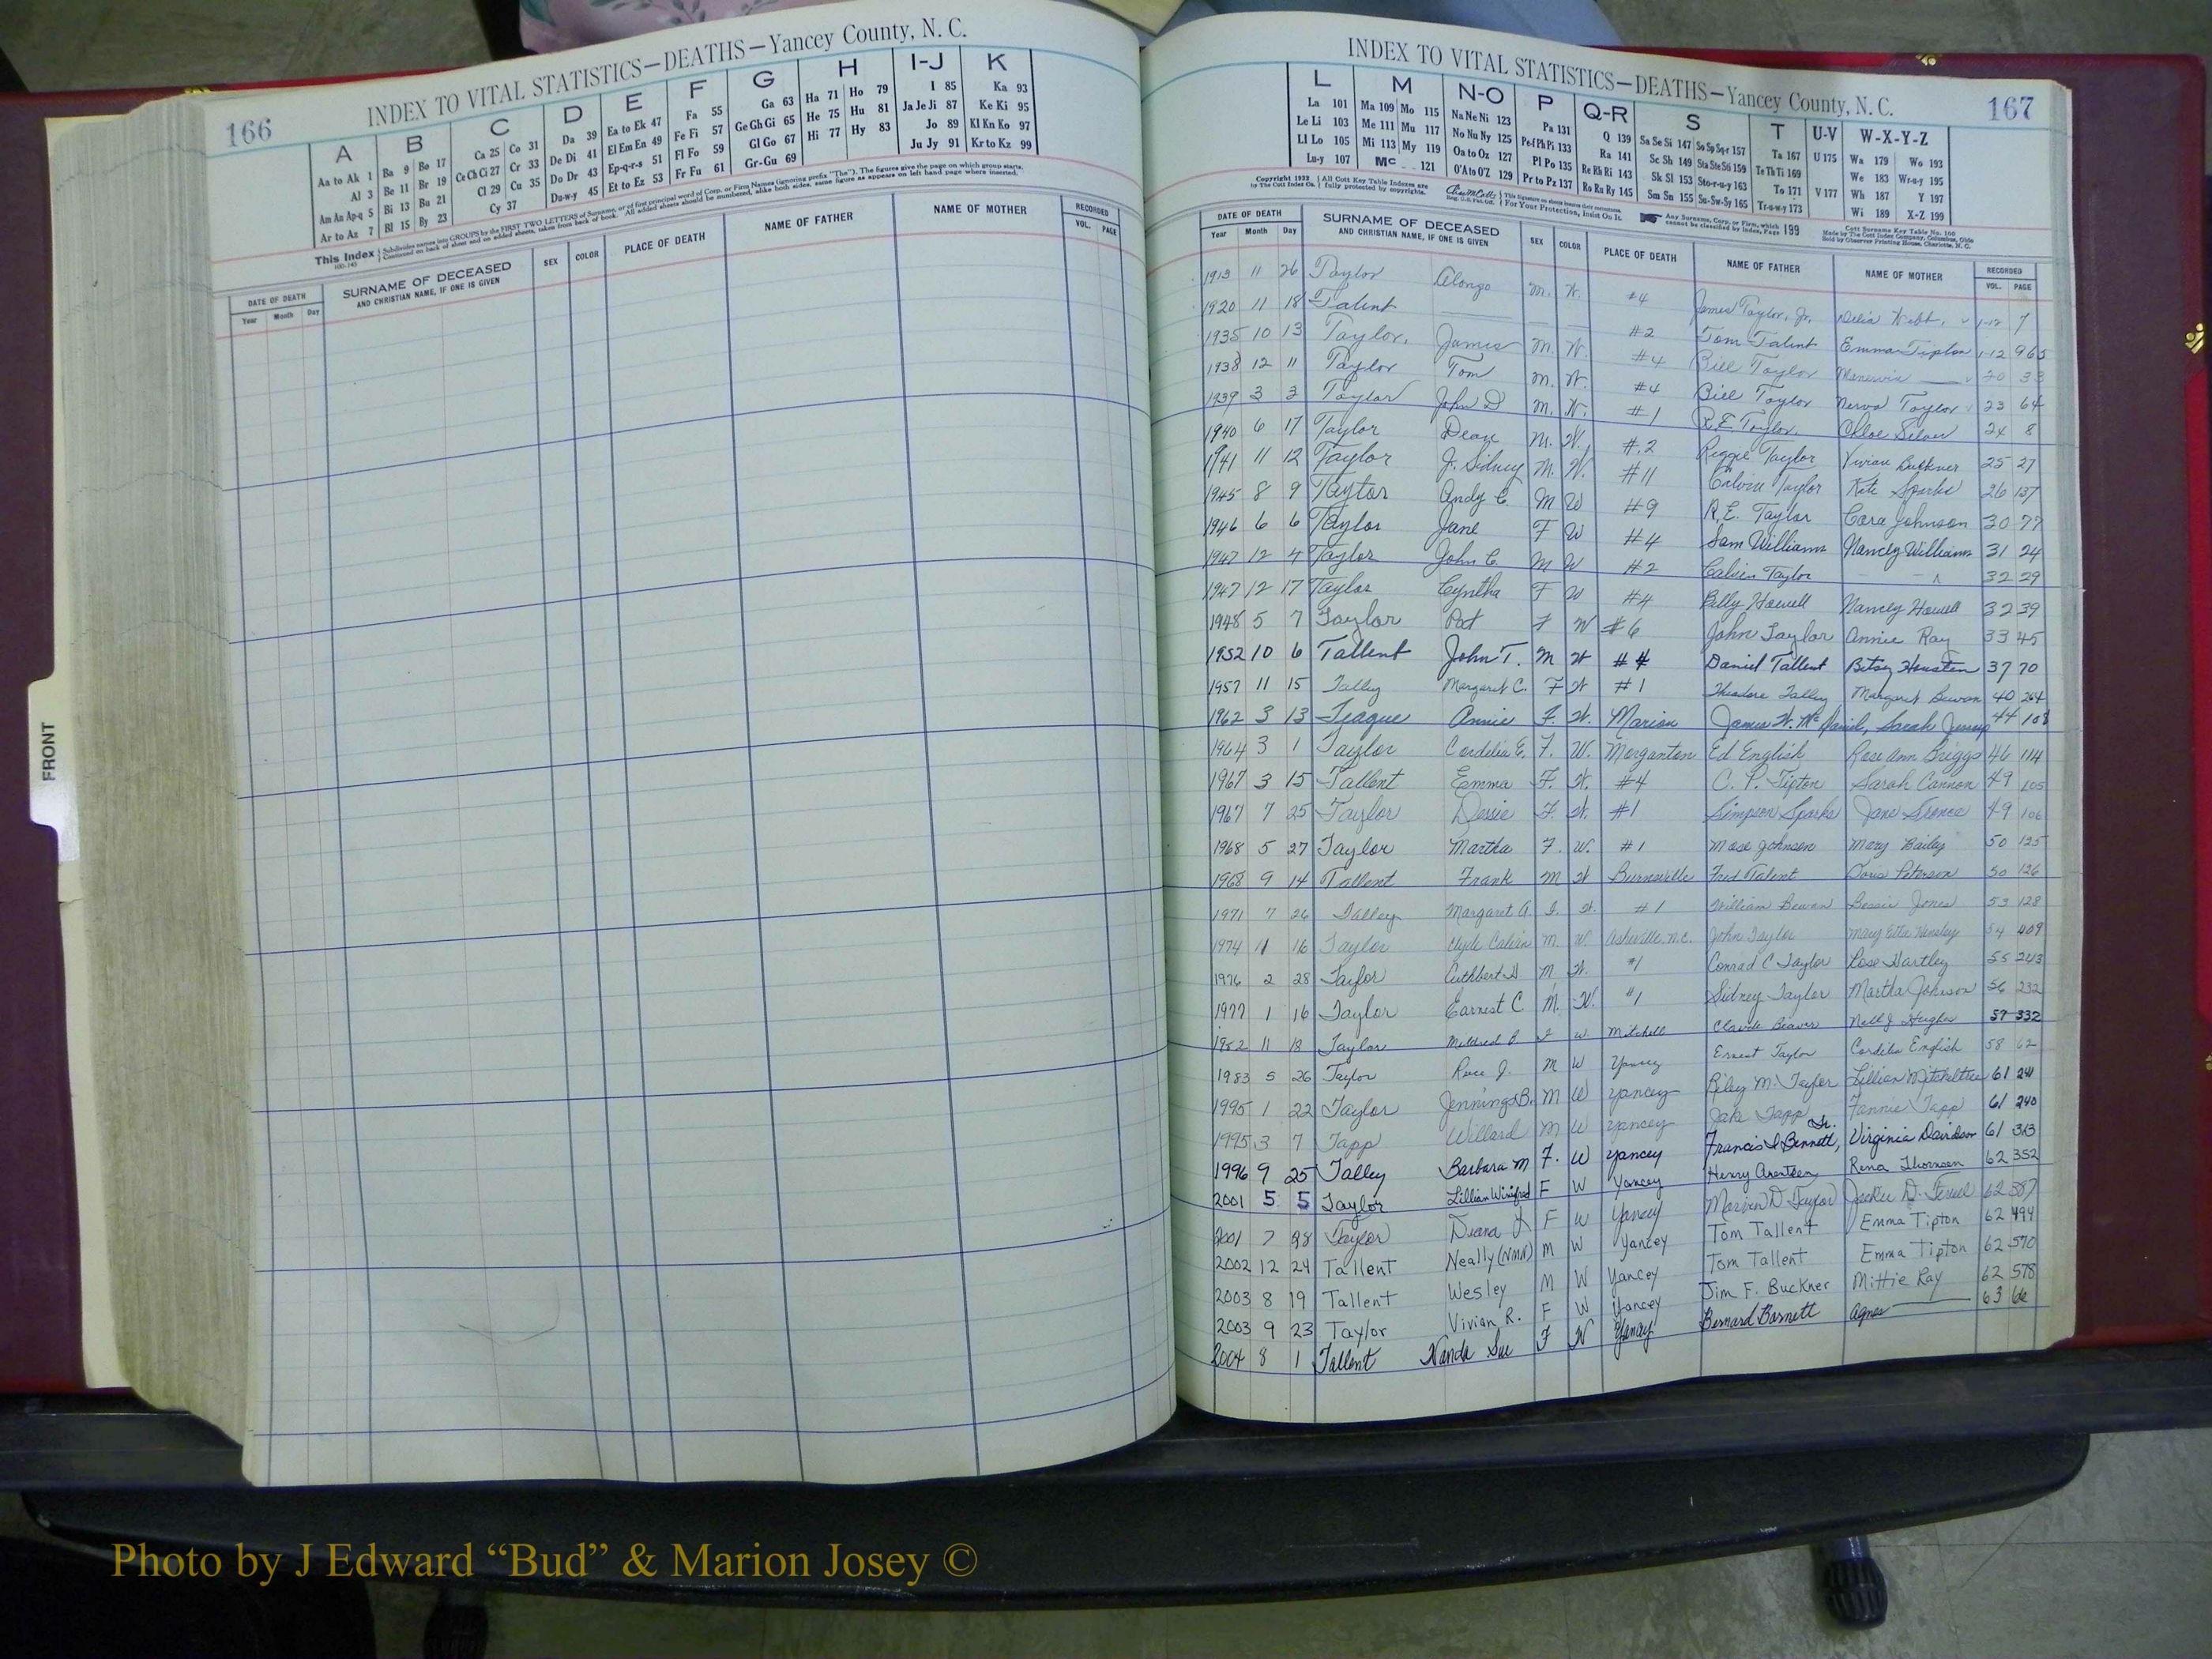 166
INDEX TO VITAL STATISTICS—DEATHS—Yancey County, N. C.
A B C D E F G H I-J K
Aa to Ak 1 Ba 9 Bo 17 Ca 25 Co 31 Da 39 Ea to Ek 47 Fa 55 Ga 63 Ha 71 Ho 79 I 85 Ka 93
Al 3 Be 11 Br 19 Ce Ch Ci 27 Cr 33 De Di 41 El Em En 49 Fe Fi 57 Ge Gh Gi 65 He 75 Hu 81 Ja Je Ji 87 Ke Ki 95
Am An Ap-q 5 Bi 13 Bu 21 Cl 29 Cu 35 Do Dr 43 Ep-q-r-s 51 Fl Fo 59 Gl Go 67 Hi 77 Hy 83 Jo 89 Kl Kn Ko 97
Ar to Az 7 Bl 15 By 23 Cy 37 Du-w-y 45 Et to Ez 53 Fr Fu 61 Gr-Gu 69 Ju Jy 91 Kr to Kz 99
This Index
DATE OF DEATH SURNAME OF DECEASED SEX COLOR PLACE OF DEATH NAME OF FATHER NAME OF MOTHER RECORDED
Year Month Day AND CHRISTIAN NAME, IF ONE IS GIVEN VOL. PAGE
FRONT
INDEX TO VITAL STATISTICS—DEATHS—Yancey County, N. C.
167
L M N-O P Q-R S T U-V W-X-Y-Z
La 101 Ma 109 Mo 115 Na Ne Ni 123 Pa 131 Q 139 Sa Se Si 147 So Sp Sq-r 157 Ta 167 U 175 Wa 179 Wo 193
Le Li 103 Me 111 Mu 117 No Nu Ny 125 Pe-f Ph Pi 133 Ra 141 Sc Sh 149 Sta Ste Sti 159 Te Th Ti 169 We 183 Wr-u-y 195
Ll Lo 105 Mi 113 My 119 Oa to Oz 127 Pl Po 135 Re Rh Ri 143 Sk Sl 153 Sto-r-u-y 163 To 171 V 177 Wh 187 Y 197
Lu-y 107 Mc 121 O'A to O'Z 129 Pr to Pz 137 Ro Ru Ry 145 Sm Sn 155 Su-Sw-Sy 165 Tr-u-w-y 173 Wi 189 X-Z 199
DATE OF DEATH SURNAME OF DECEASED SEX COLOR PLACE OF DEATH NAME OF FATHER NAME OF MOTHER RECORDED
Year Month Day AND CHRISTIAN NAME, IF ONE IS GIVEN VOL. PAGE
1913 11 26 Taylor Alonzo M. W. #4 James Taylor, Jr. Delia Webb 1-12 7
1920 11 18 Talent #2 Tom Talent Emma Tipton 1-12 965
1935 10 13 Taylor, James M. W. #4 Bill Taylor 20 33
1938 12 11 Taylor Tom M. W. #4 Bill Taylor Nerva Taylor 23 64
1939 3 3 Taylor John D M. W. #1 R.E. Taylor Chloe Silver 24 8
1940 6 17 Taylor Dean M. W. #2 Reggie Taylor Vivian Buckner 25 27
1941 11 12 Taylor J. Sidney M. W. #11 Calvin Taylor Kite Sparks 26 137
1945 8 9 Taylor Andy C. M W #9 R.E. Taylor Cora Johnson 30 77
1946 6 6 Taylor Jane F W #4 Sam Williams Nancy Williams 31 24
1947 12 4 Taylor John C. M W #2 Calvin Taylor 32 29
1947 12 17 Taylor Cyntha F W #4 Billy Howell Nancy Howell 32 39
1948 5 7 Taylor Pat F W #6 John Taylor Annie Ray 33 45
1952 10 6 Tallent John T. M W #4 Daniel Tallent Betsy Housten 37 70
1957 11 15 Talley Margaret C. F W #1 Theodore Talley Margaret Bewan 40 264
1962 3 13 Teague Annie F. W. Marion James W. McDaniel, Sarah Jessup 44 108
1964 3 1 Taylor Cordelia E. F. W. Morganton Ed English Rose Ann Briggs 46 114
1967 3 15 Tallent Emma F. W. #4 C. P. Tipton Sarah Cannon 49 105
1967 7 25 Taylor Dessie F. W. #1 Simpson Sparks Jane 49 106
1968 5 27 Taylor Martha F. W. #1 Mase Johnson Mary Bailey 50 125
1968 9 14 Tallent Frank M W Burnsville Fred Talent Doris Peterson 50 126
1971 7 26 Talley Margaret A. F. W. #1 William Bewan Bessie Jones 53 128
1974 11 16 Taylor Clyde Calvin M. W. Asheville, N.C. John Taylor Mary Etta Hensley 54 409
1976 2 28 Taylor Cuthbert H M W. #1 Conrad C Taylor Rose Hartley 55 243
1977 1 16 Taylor Earnest C. M. W. #1 Sidney Taylor Martha Johnson 56 232
1982 11 18 Taylor Mildred B F W. Mitchell Claude Beaver Nell J Hughes 57 332
1983 5 26 Taylor J. M W Yancey Ernest Taylor Cordelia English 58 62
1995 1 22 Taylor Jennings B. M W Yancey Riley M. Taylor Lillian Mitcheltree 61 241
1995 3 7 Tapp Willard M W Yancey Jake Tapp Fannie Tapp 61 240
1996 9 25 Talley Barbara M F. W Yancey Francis I Bennett, Sr. Virginia Davidson 61 313
2001 5 5 Taylor Lillian Winifred F W Yancey Henry Arentzen Rena Thomsen 62 352
2001 7 28 Taylor Diana F W Yancey Marion D Taylor Jackie D. 62 387
2002 12 24 Tallent Neally (NMN) M W Yancey Tom Tallent Emma Tipton 62 494
2003 8 19 Tallent Wesley M W Yancey Tom Tallent Emma Tipton 62 570
2003 9 23 Taylor Vivian R. F W Yancey Jim F. Buckner Mittie Ray 62 578
2004 8 1 Tallent Wanda Sue F W Yancey Bernard Barnett Agnes 63
Photo by J Edward “Bud” & Marion Josey ©